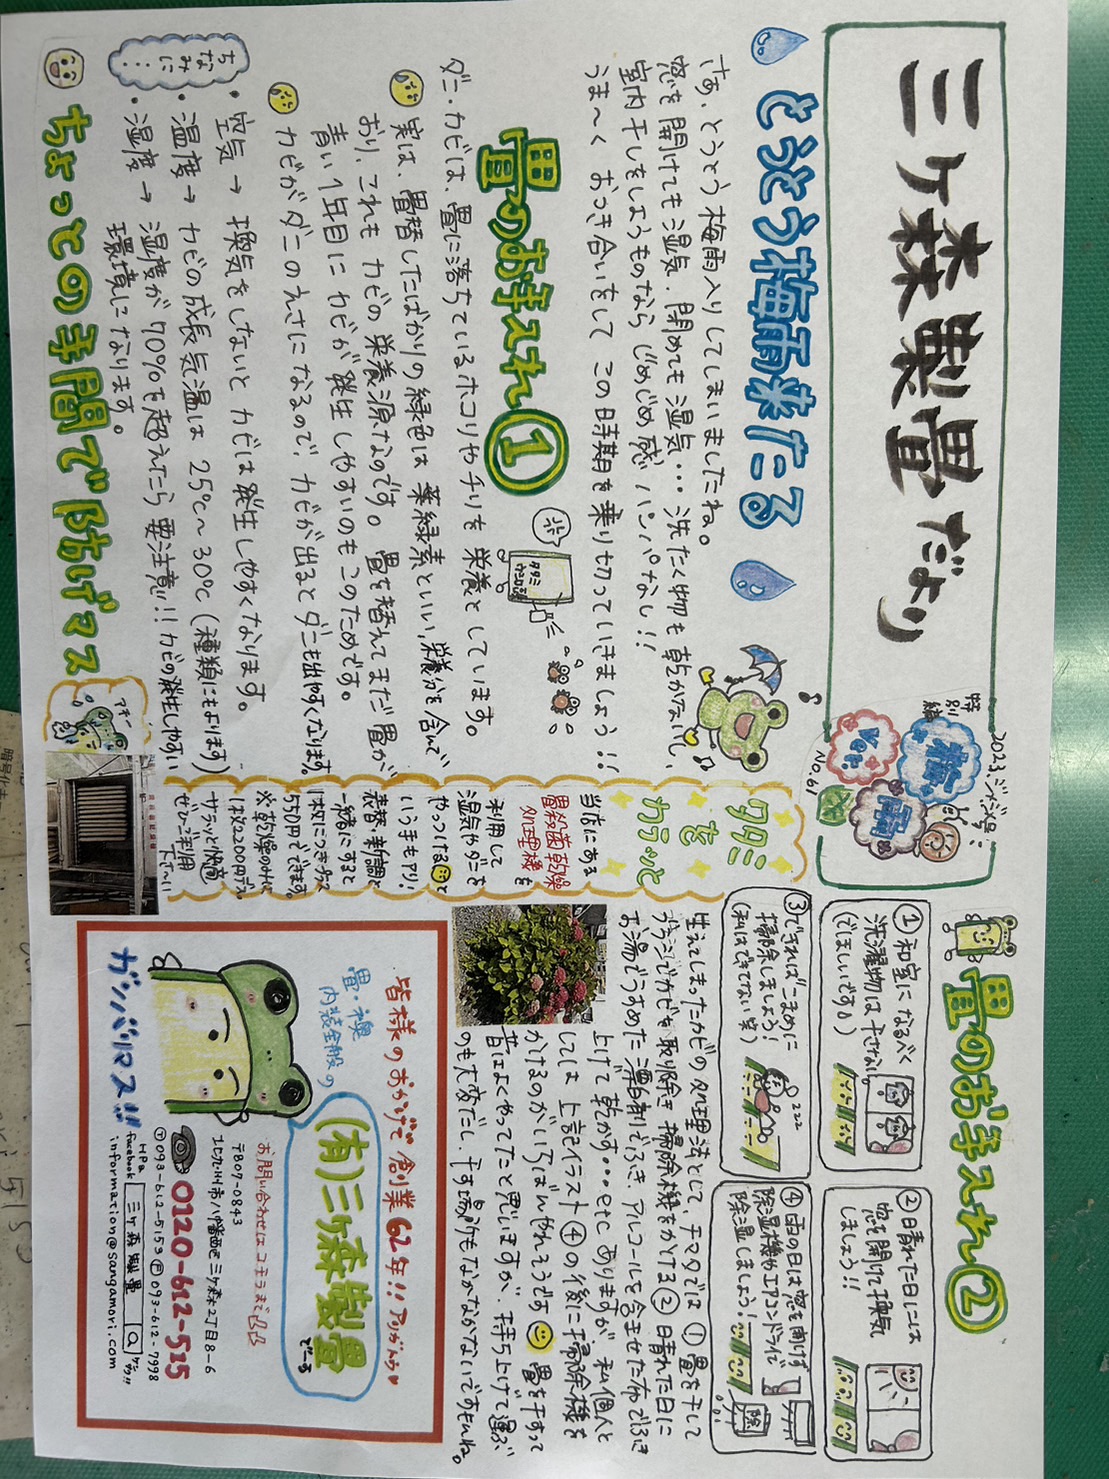 三ケ森製畳だより
2023.ジバン号
No.61
特別編
梅
雨
Ver.
とうとう梅雨来たる
さぁ、とうとう梅雨入りしてしまいましたね。
窓を開けても湿気、閉めても湿気・・・洗たく物も乾かないし、
室内干しをしようものなら じめじめ感 ハンパなし!!
うま〜く おつき合いをして この時期を乗り切っていきましょう!!
畳のお手入れ①
タタミ
ダニ・カビは、畳に落ちているホコリやチリを 栄養としています。
実は、畳替したばかりの緑色は 葉緑素といい、栄養分を含んで
おり、これも カビの 栄養源なのです。 畳を替えてまだ畳が
青い1年目に カビが発生しやすいのもこのためです。
カビがダニのえさになるので、カビが出るとダニも出やすくなります。
ちなみに…
・空気 → 換気をしないと カビは発生しやすくなります。
・温度 → カビの成長気温は 25℃〜30℃(種類にもよります)
・湿度 → 湿度が70%を超えたら 要注意!! カビの発生しやすい
環境になります。
ちょっとの手間で防げマス
タタミ
を
カラッと
当店にある
畳殺菌乾燥
処理機を
利用して
湿気やダニを
やっつけると
いう手もアリ!
表替・新調と
一緒にすると
1枚につきプラス
550円でできます。
※乾燥のみは
1枚2200円デス。
サラッと快適
ぜひご利用
下さ〜い
畳のお手入れ②
①和室になるべく
洗濯物は干さない
(でほしいです)
②日晴れた日には
窓を開けて換気
しましょう!!
③できればこまめに
掃除しましょう!
(私はできてない 笑)
④雨の日は窓を開けず
除湿機やエアコンドライで
除湿しましょう!
除
生えてしまったカビの処理法として、チマタでは ①畳を干して
ブラシでカビを取り除き 掃除機をかける ②日晴れた日に
お湯でうすめた漂白剤でふき、アルコールを含ませた布でふき
上げて乾かす・・・etc ありますが、私個人と
しては 上記イラスト④の後に掃除機を
かけるのがいちばんやれそうです 畳を干すって
昔はよくやってたと思いますが、持ち上げて運ぶ
のも大変だし、干す場所もなかなかないですもんね。
皆様のおかげで 創業62年!! アリガトウ♥
畳・襖
内装全般の
(有)三ケ森製畳
でーす
ガンバリマス!!!
お問い合わせはコチラまで
〒807-0843
北九州市八幡西区三ケ森2丁目8-6
0120-612-515
Ⓣ093-612-5153 Ⓕ093-612-7998
HP&
facebook 三ケ森製畳
information@sangamori.com